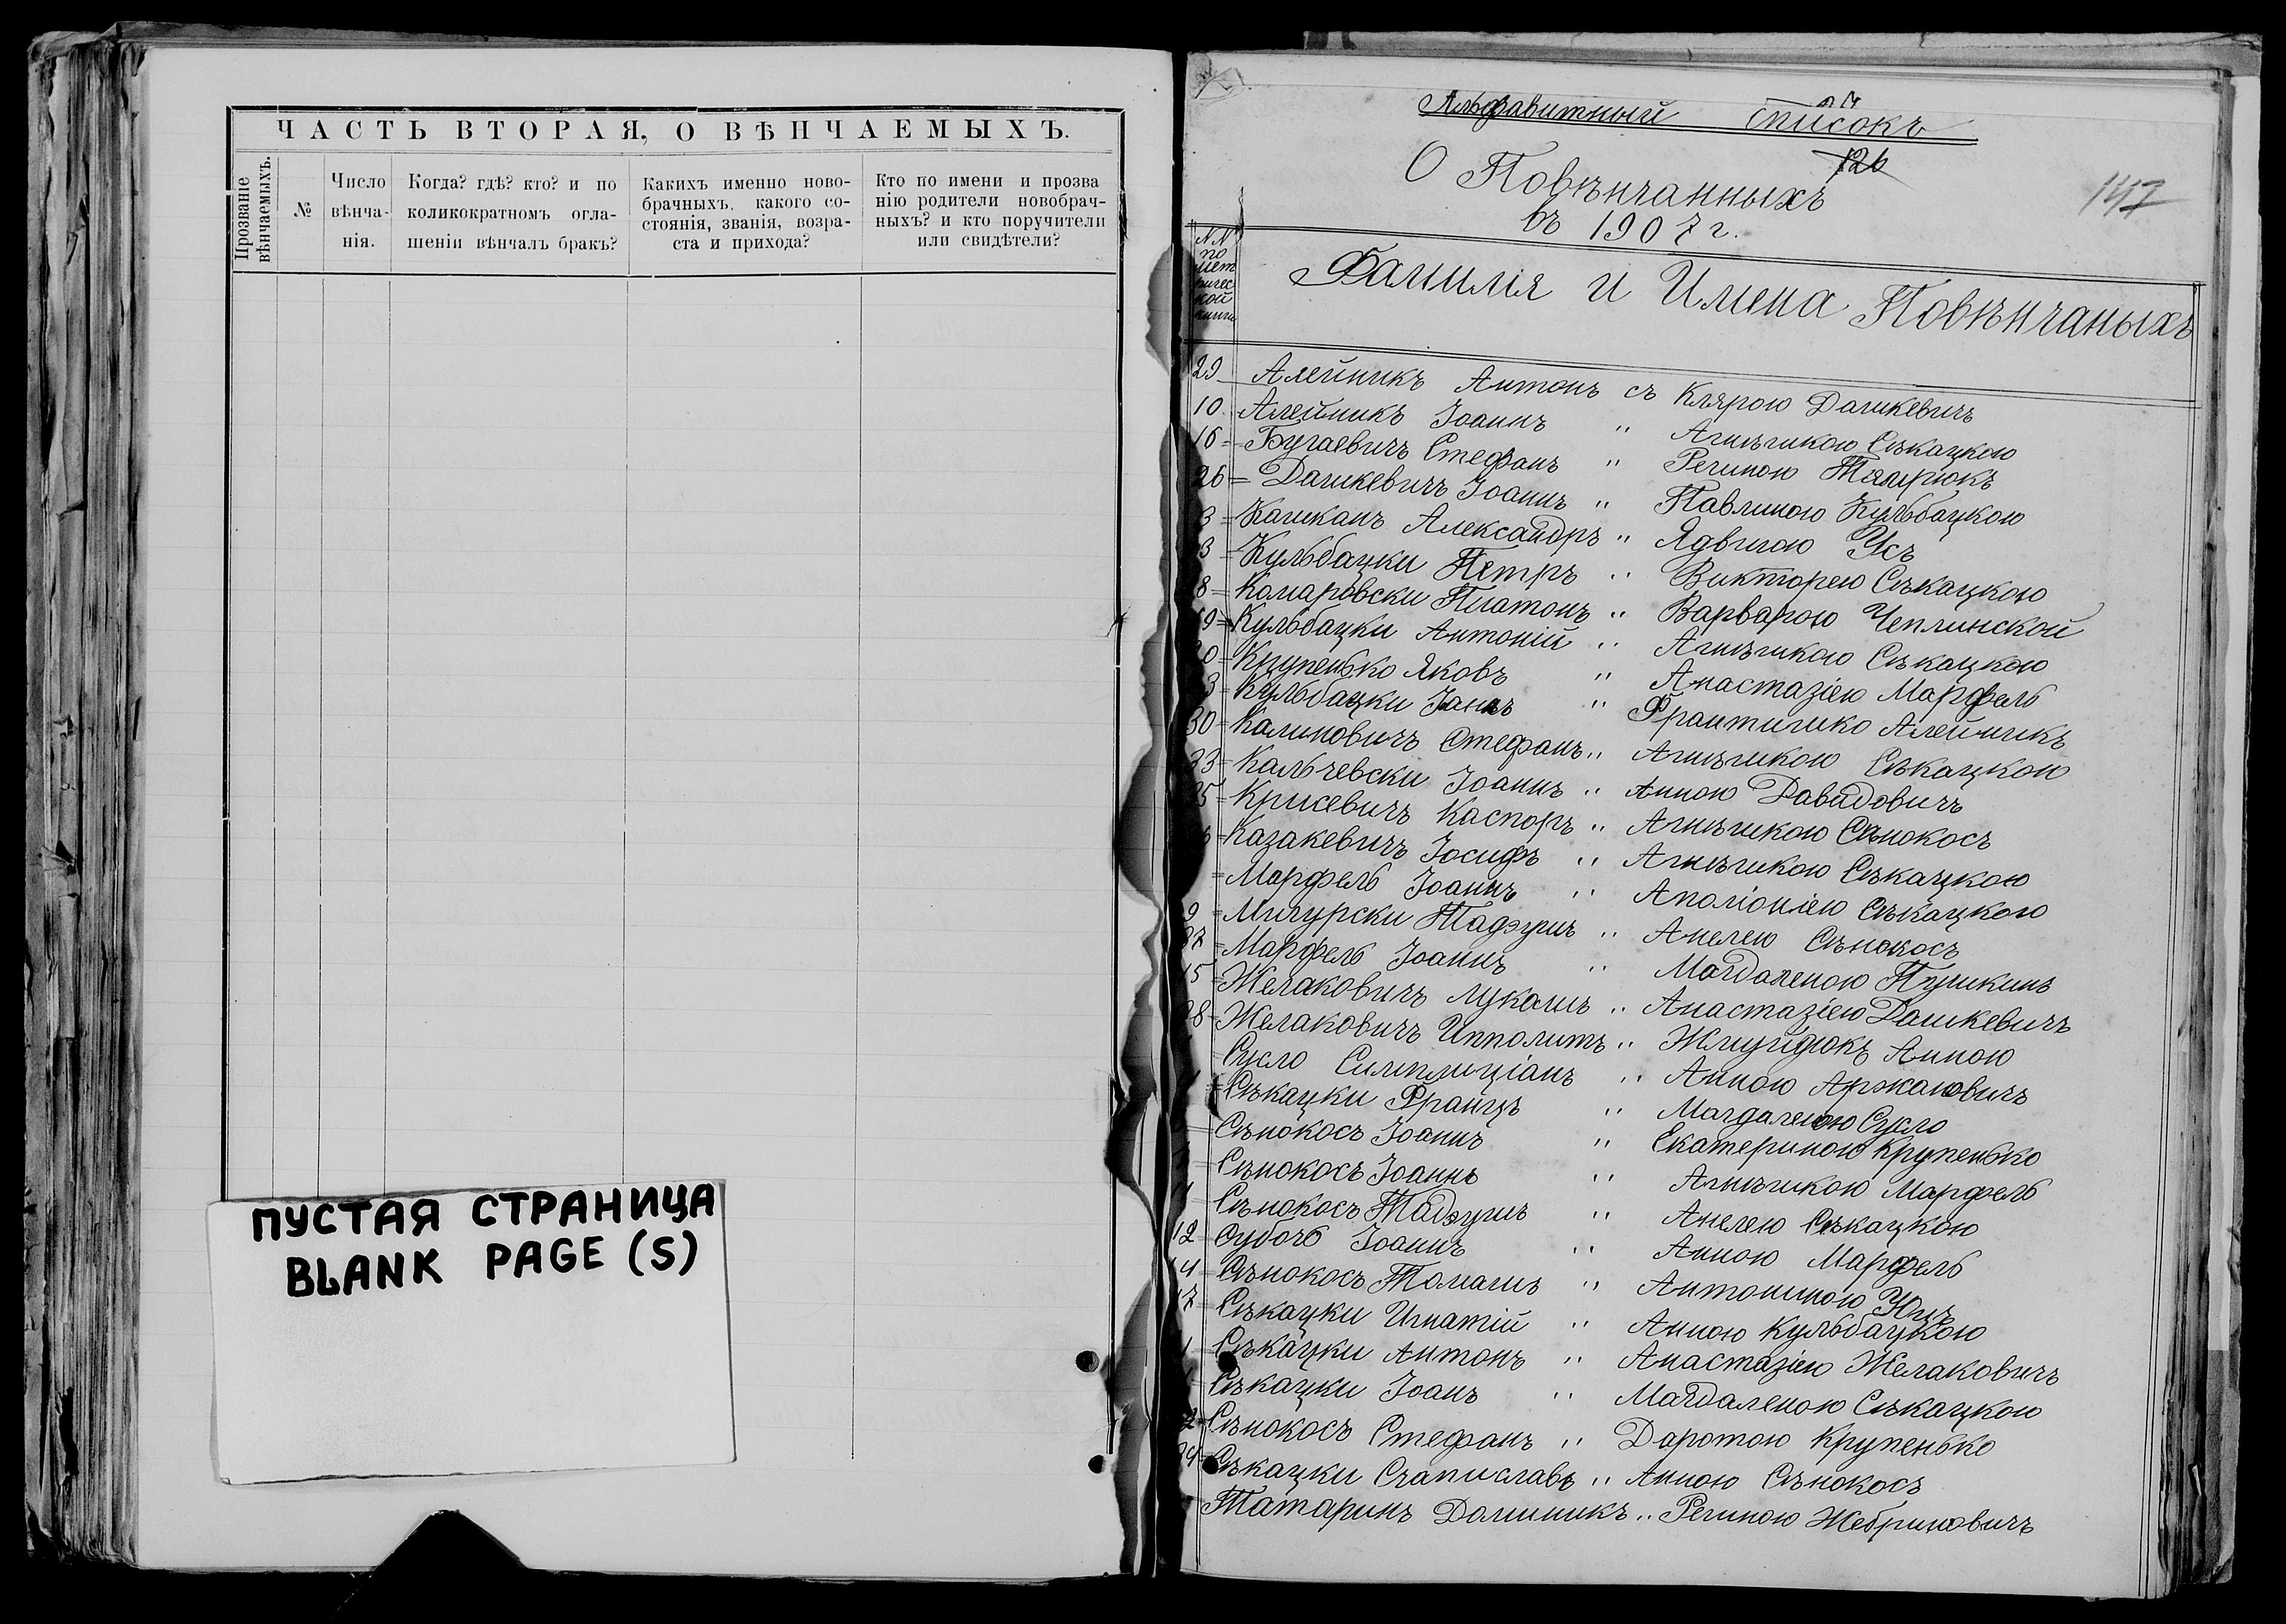 ЧАСТЬ ВТОРАЯ, О ВѢНЧАЕМЫХЪ.
Прозваніе вѣнчаемыхъ.
№
Число вѣнча-
нія.
Когда? гдѣ? кто? и по
коликократномъ огла-
шеніи вѣнчалъ бракъ?
Какихъ именно ново-
брачныхъ, какого со-
стоянія, званія, возра-
ста и прихода?
Кто по имени и прозва
нію родители новобрач-
ныхъ? и кто поручители
или свидѣтели?
ПУСТАЯ СТРАНИЦА
BLANK PAGE (S)
Альфавитный списокъ
126
О Повѣнчанныхъ
147
въ 1907 г.
NN
по
мет
ричес
кой
книги
Фамилія и Имена Повѣнчаныхъ
29 Алейникъ Антонъ съ Клярою Дашкевичъ
10 Алейникъ Іоаннъ " Агнѣшкою Сѣкацкою
16 Бугаевичъ Стефанъ " Региною Тямрюкъ
26 Дашкевичъ Іоаннъ " Павлиною Кульбацкою
3 Кашканъ Александръ " Ядвигою Усъ
3 Кульбацки Петръ " Викторею Сѣкацкою
8 Комаровски Платонъ " Варварою Чеплинской
9 Кульбацки Антоній " Агнѣшкою Сѣкацкою
0 Крупенько Яковъ " Анастазіею Марфель
3 Кульбацки Іанъ " Франтишко Алейникъ
30 Калиновичъ Стефанъ " Агнѣшкою Сѣкацкою
33 Кальчевски Іоаннъ " Анною Давидовичъ
35 Крисевичъ Каспоръ " Агнѣшкою Сѣнокосъ
6 Казакевичъ Іосифъ " Агнѣшкою Сѣкацкою
Марфель Іоаннъ " Аполіоніею Сѣкацкою
9 Мичурски Тадэушъ " Анелею Сѣнокосъ
27 Марфель Іоаннъ " Магдаленою Пушкинъ
15 Желаковичъ Лукашъ " Анастазіею Дашкевичъ
28 Желаковичъ Ипполитъ " Жмуйдюкъ Анною
Сусло Симплиціанъ " Анною Аржановичъ
Сѣкацки Францъ " Магдаленою Сусло
Сѣнокосъ Іоаннъ " Екатериною Крупенько
Сѣнокосъ Іоаннъ " Агнѣшкою Марфель
Сѣнокосъ Тадэушъ " Анелею Сѣкацкою
12 Субочь Іоаннъ " Анною Марфель
14 Сѣнокосъ Томашъ " Антониною Юнъ
17 Сѣкацки Игнатій " Анною Кульбацкою
Сѣкацки Антонъ " Анастазіею Желаковичъ
Сѣкацки Іоанъ " Магдаленою Сѣкацкою
2 Сѣнокосъ Стефанъ " Даротою Крупенько
34 Сѣкацки Станиславъ " Анною Сѣнокосъ
Татаринъ Доминикъ " Региною Жебриковичъ